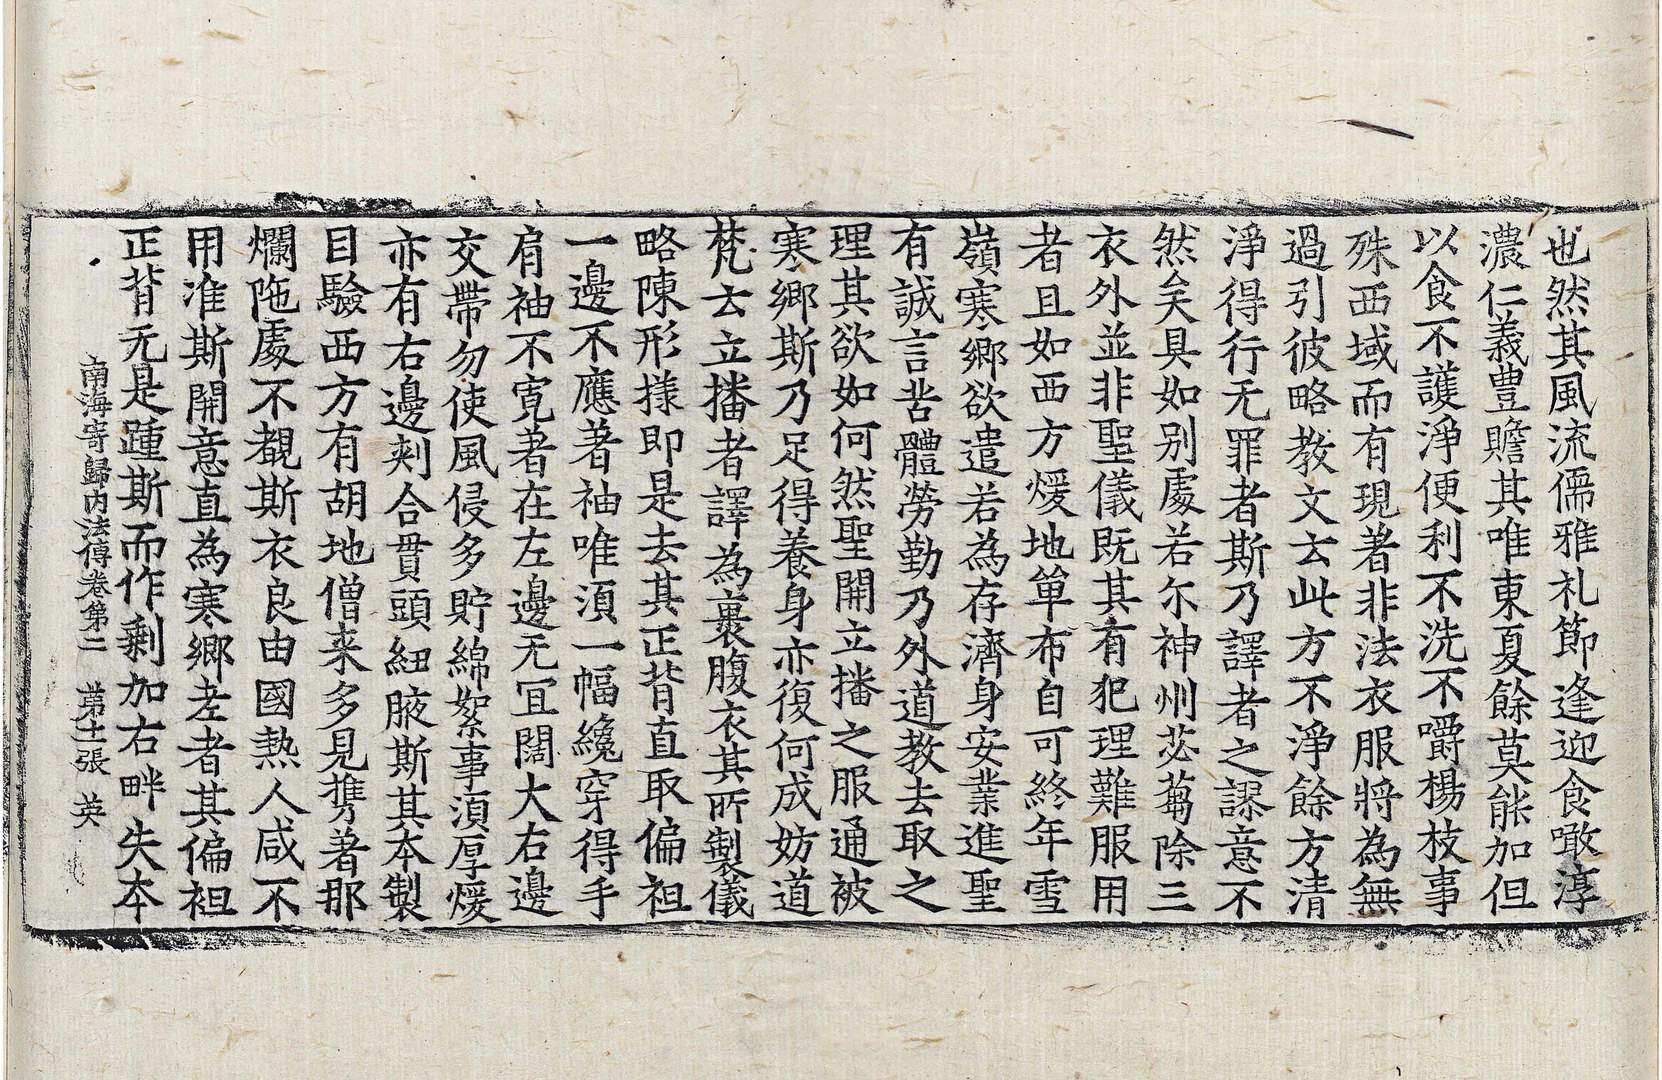 也然其風流儒雅礼節逢迎食噉淳
濃仁義豊贍其唯東夏餘莫能加但
以食不護淨便利不洗不嚼楊枝事
殊西域而有現著非法衣服將為無
過引彼略教文云此方不淨餘方清
淨得行无罪者斯乃譯者之謬意不
然矣具如別處若尔神州苾蒭除三
衣外並非聖儀既其有犯理難服用
者且如西方煖地單布自可終年雪
嶺寒鄉欲遣若為存濟身安業進聖
有誠言苦體勞勤乃外道教去取之
理其欲如何然聖開立播之服通被
寒鄉斯乃足得養身亦復何成妨道
梵云立播者譯為裹腹衣其所製儀
略陳形様即是去其正背直取偏袒
一邊不應著袖唯湏一幅纔穿得手
肩袖不寛著在左邊无冝闊大右邊
交帶勿使風侵多貯綿絮事湏厚煖
亦有右邊刾合貫頭紐腋斯其本製
目驗西方有胡地僧来多見携著那
爛陁處不覩斯衣良由國熱人咸不
用准斯開意直為寒鄉老者其偏袒
正背无是踵斯而作剩加右畔失本
南海寄歸内法傳卷第二 第十一張 英